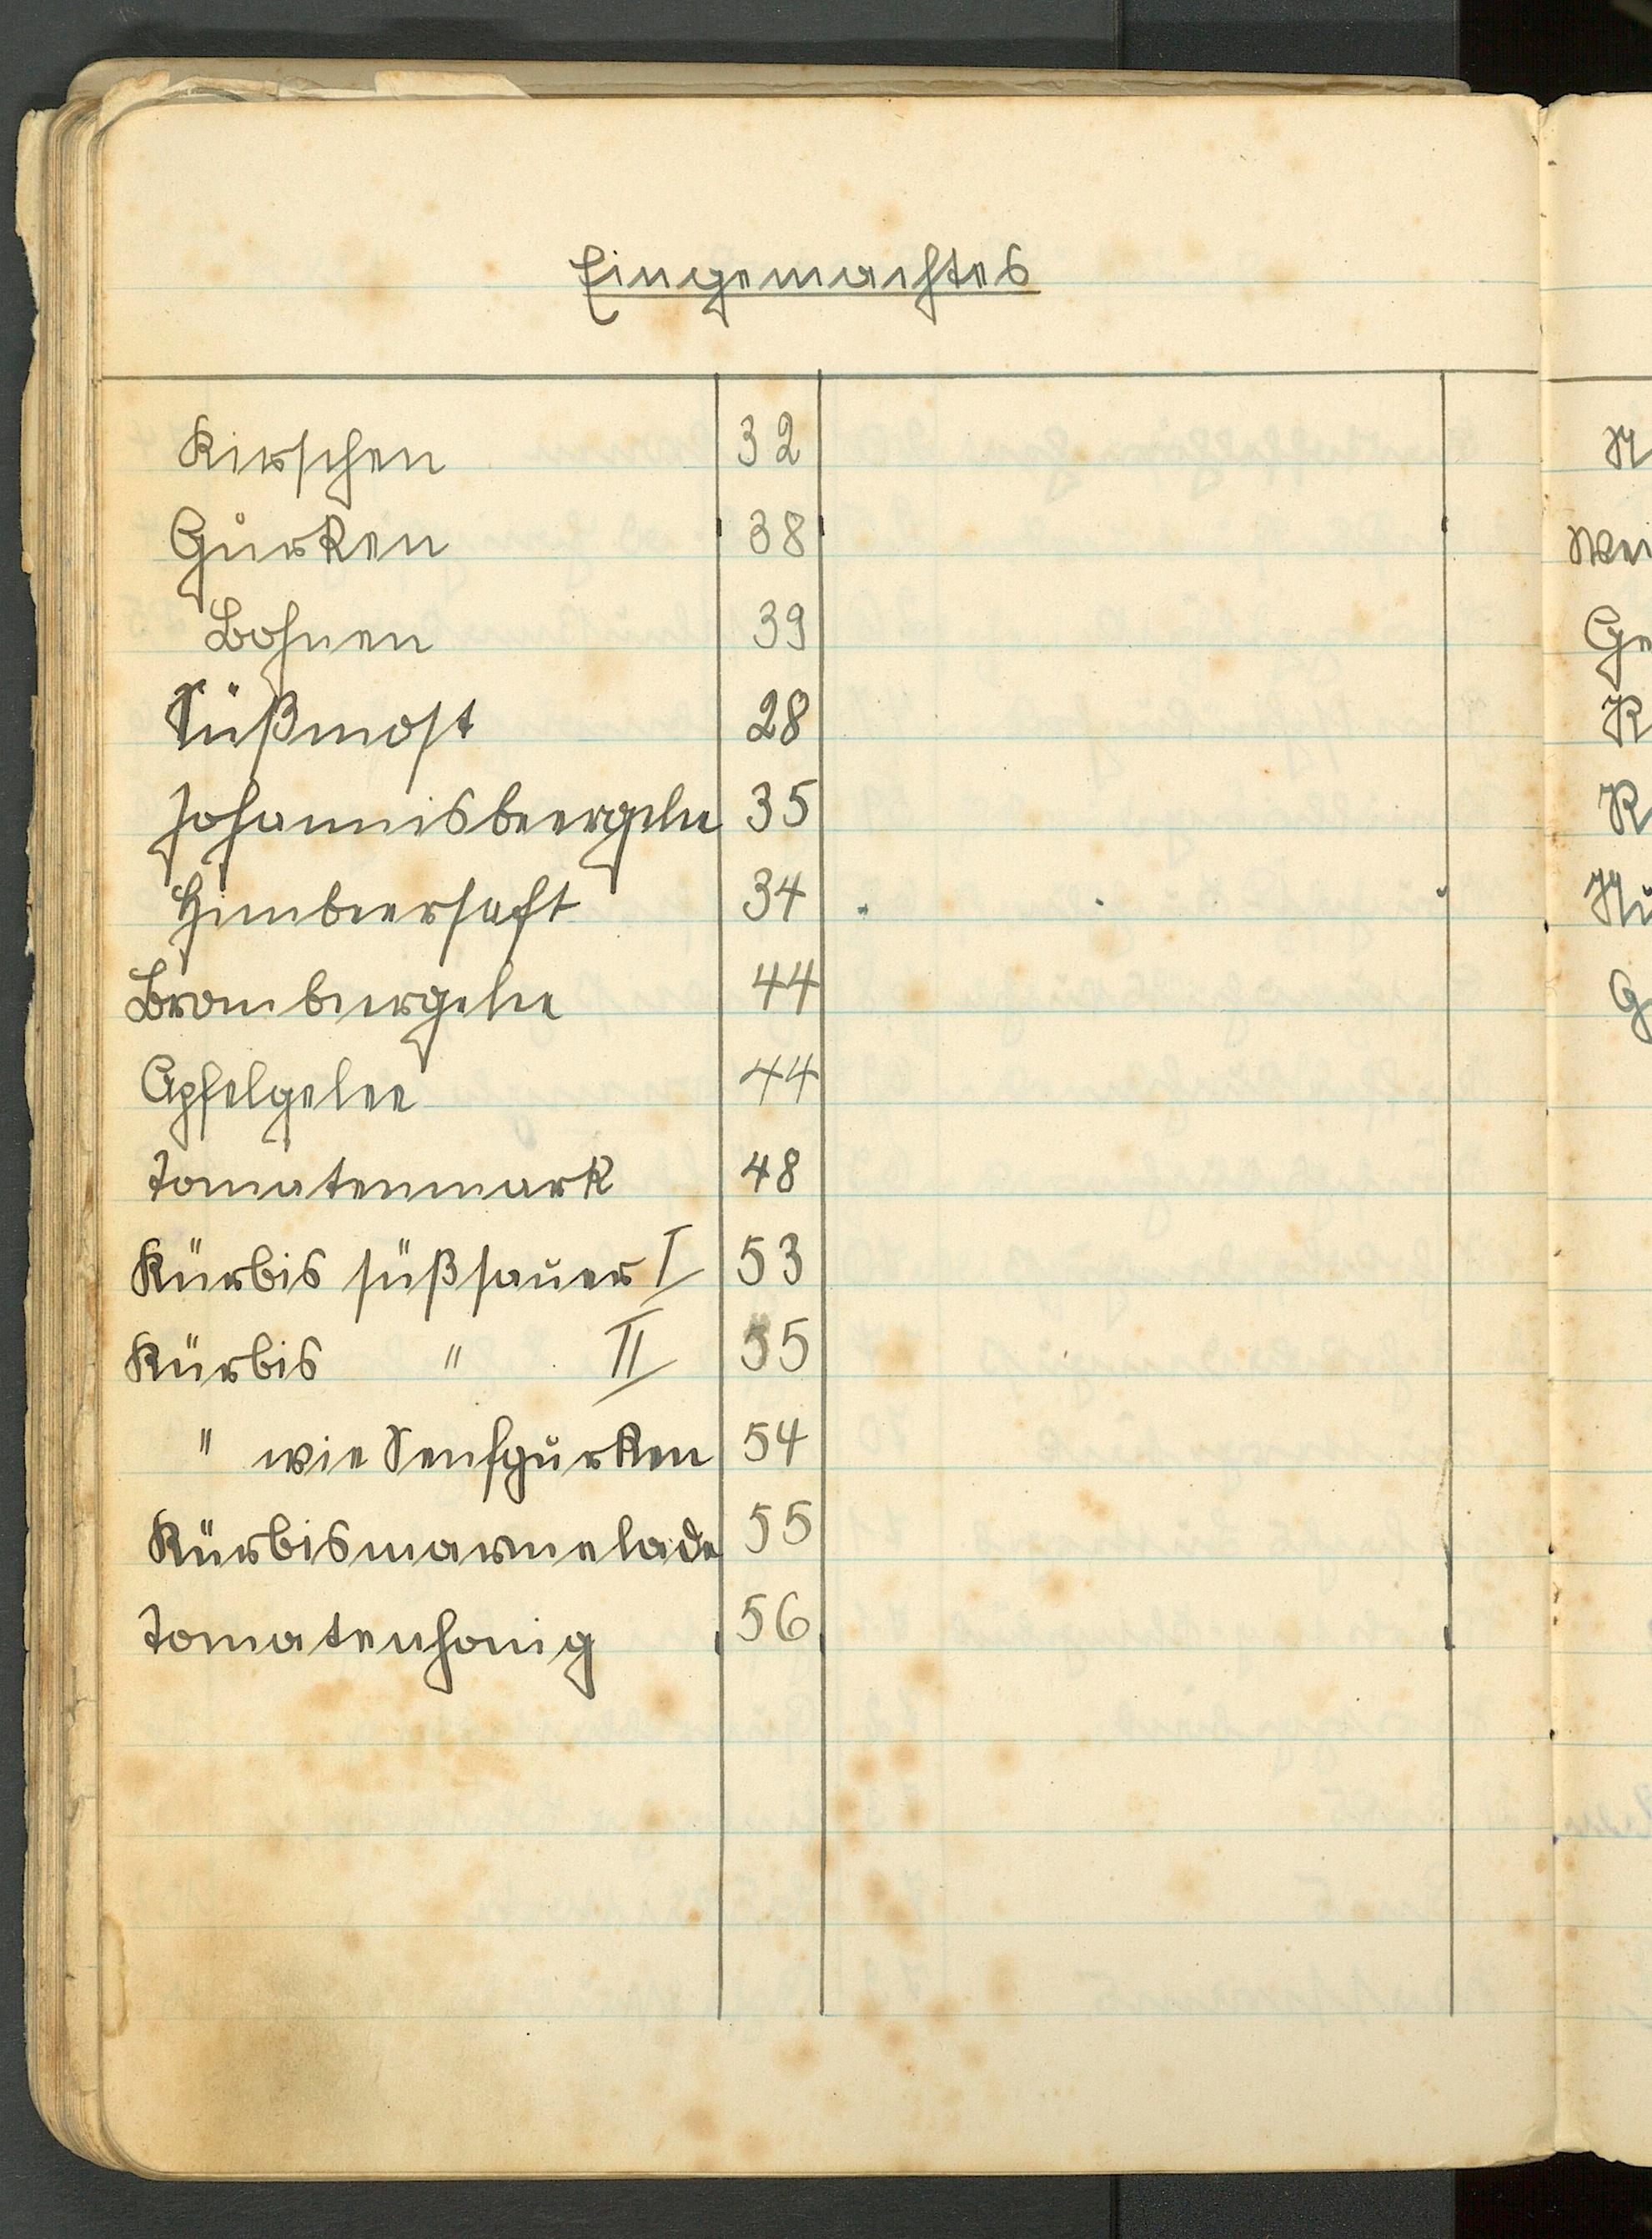 Eingemachtes
Kirschen 32
Gurken 38
Bohnen 39
Süßmost 28
Johannisbeergelee 35
Himbeersaft 34
Brombeergelee 44
Apfelgelee 44
Tomatenmark 48
Kürbis süßsauer I 53
Kürbis " II 55
" wie Senfgurken 54
Kürbismarmelade 55
Tomatenhonig 56